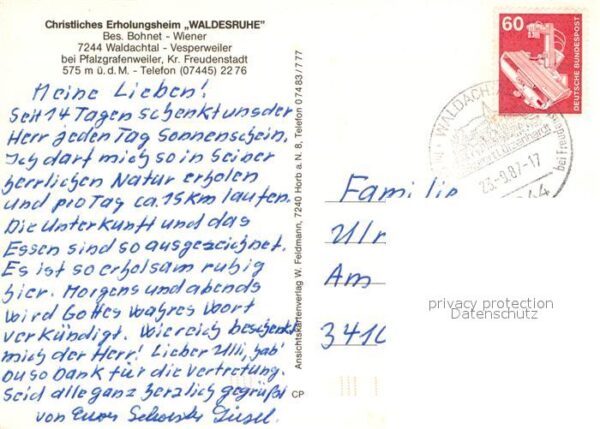 Christliches Erholungsheim „WALDESRUHE"
Bes. Bohnet - Wiener
7244 Waldachtal - Vesperweiler
bei Pfalzgrafenweiler, Kr. Freudenstadt
575 m ü. d. M. - Telefon (07445) 2276
Meine Lieben!
Seit 14 Tagen schenkt uns der
Herr jeden Tag Sonnenschein.
Ich darf mich so in Seiner
herrlichen Natur erholen
und pro Tag ca. 15 km laufen.
Die Unterkunft und das
Essen sind so ausgezeichnet.
Es ist so erholsam ruhig
hier. Morgens und abends
wird Gottes wahres Wort
verkündigt. Wie reich beschenkt
mich der Herr! Lieber Ulli, hab'
Du so Dank für die Vertretung.
Seid alle ganz herzlich gegrüßt
von Eurer Schwester
Ansichtskartenverlag W. Feldmann, 7240 Horb a. N. 8, Telefon 07483/777
CP
60
DEUTSCHE BUNDESPOST
WALDACH
Lützenhardt
bei Freu
23.-9.87-17
44
Familie
Ulr
Am
3410
privacy protection
Datenschutz